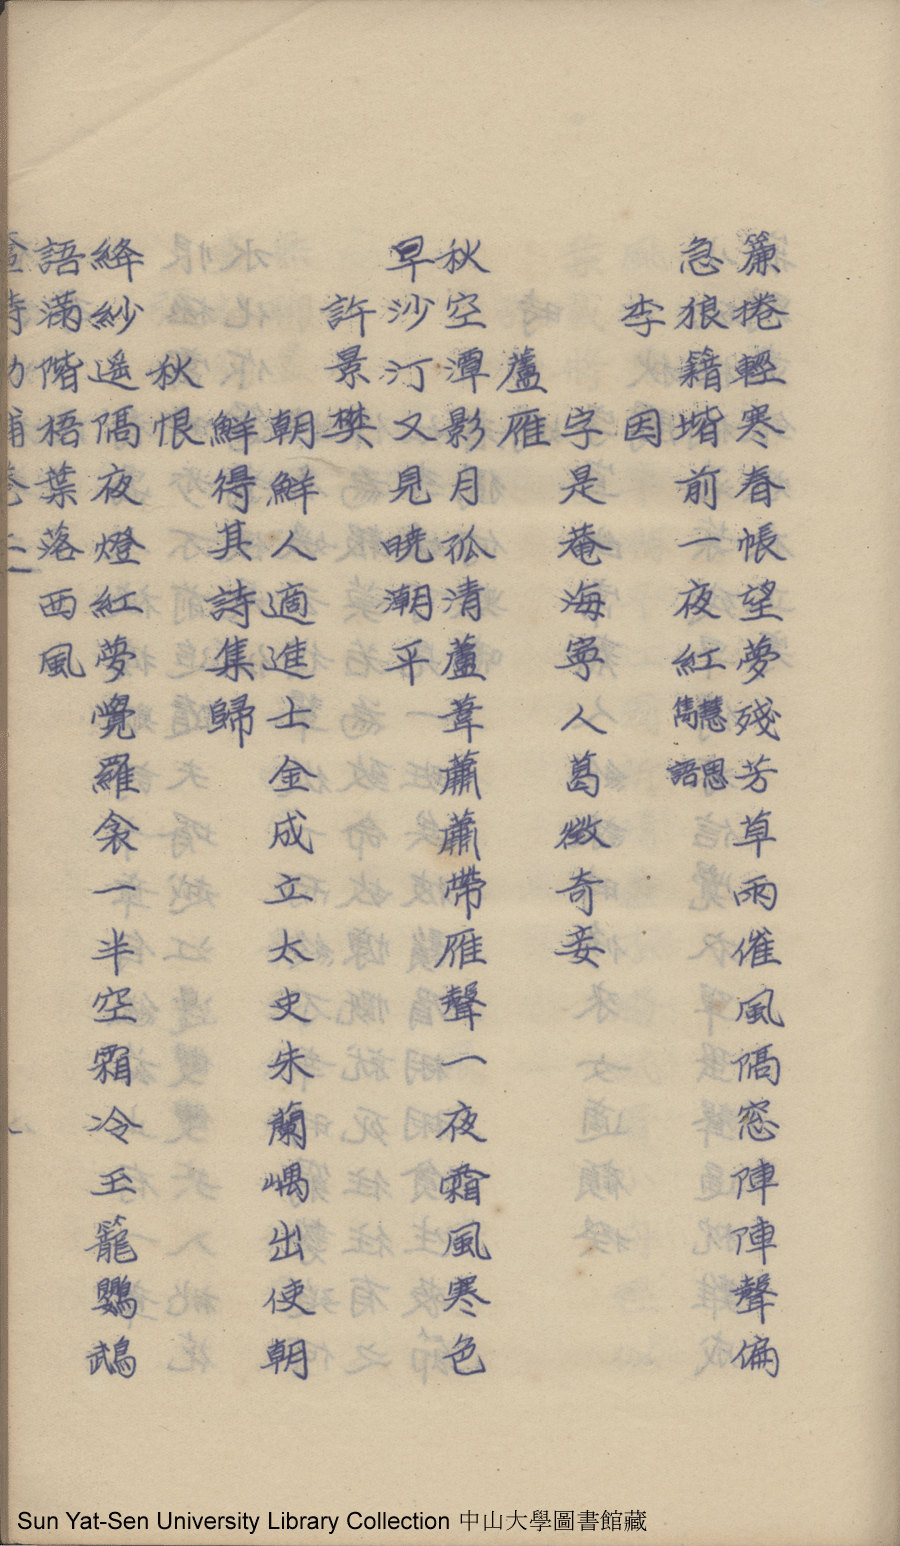 簾捲輕寒春帳望夢殘芳草雨催風隔窓陣陣聲偏
急狼籍堦前一夜紅慧思雋語
李因
字是菴海寧人葛徵奇妾
蘆雁
秋空潭影月孤清蘆葦蕭蕭帶雁聲一夜霜風寒色
早沙汀又見曉潮平
許景樊
朝鮮人適進士金成立太史朱蘭嵎出使朝
鮮得其詩集歸
秋恨
絳紗遥隔夜燈紅夢覺羅衾一半空霜冷玉籠鸚鵡
語滿階梧葉落西風
Sun Yat-Sen University Library Collection 中山大學圖書館藏